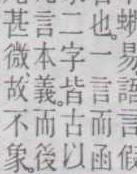 易
也。一言而函
二字皆古以
言本義。而後
甚微故不象。